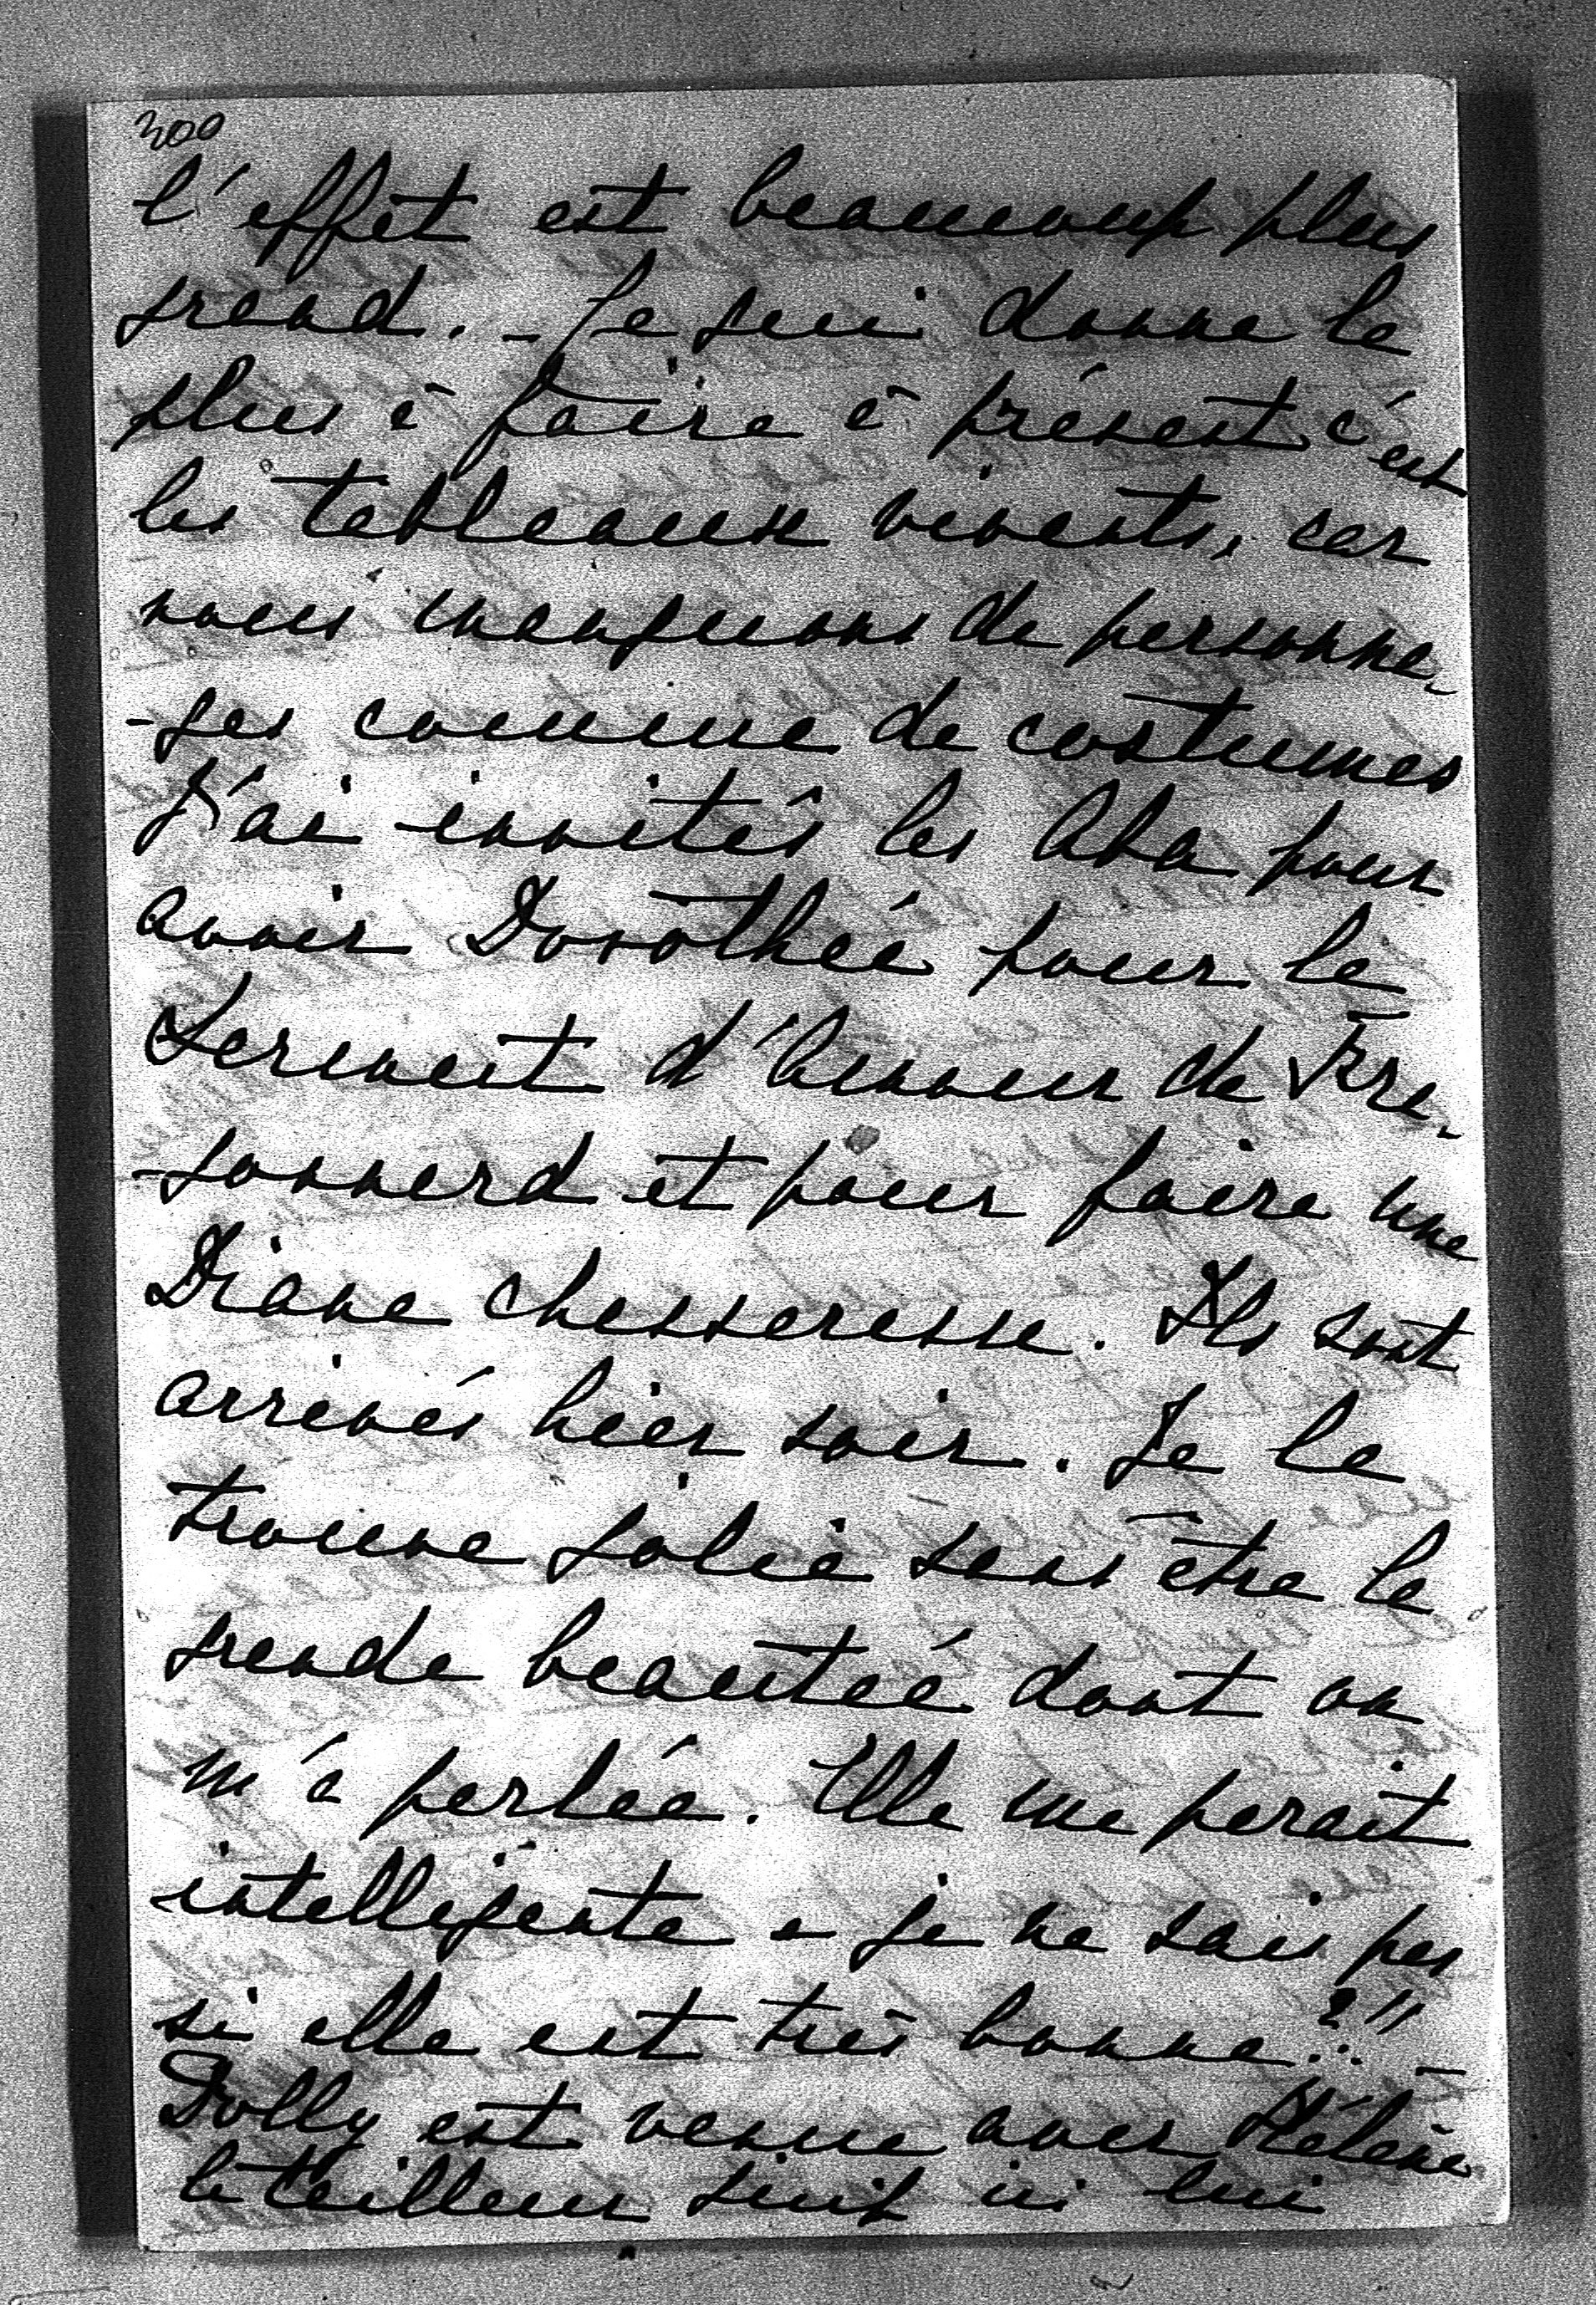 300
l'effet est beaucoup plus
grand. - Ce qui donne le
plus à faire à présent c'est
les tableaux vivants, car
nous manquons de personna-
-ges comme de costumes
J'ai invités les Aba pour
avoir Dorothée pour le
Serment d'honneur de Fra-
-gonnard et pour faire une
Diane chasseresse. Ils sont
arrivés hier soir. Je la
trouve jolie sans être la
grande beautée dont on
m'a parlée. Elle me parait
intelligente - je ne sais pas
si elle est très bonne?!!.. -
Dolly est venue avec Hélène
le tailleur juif ici lui